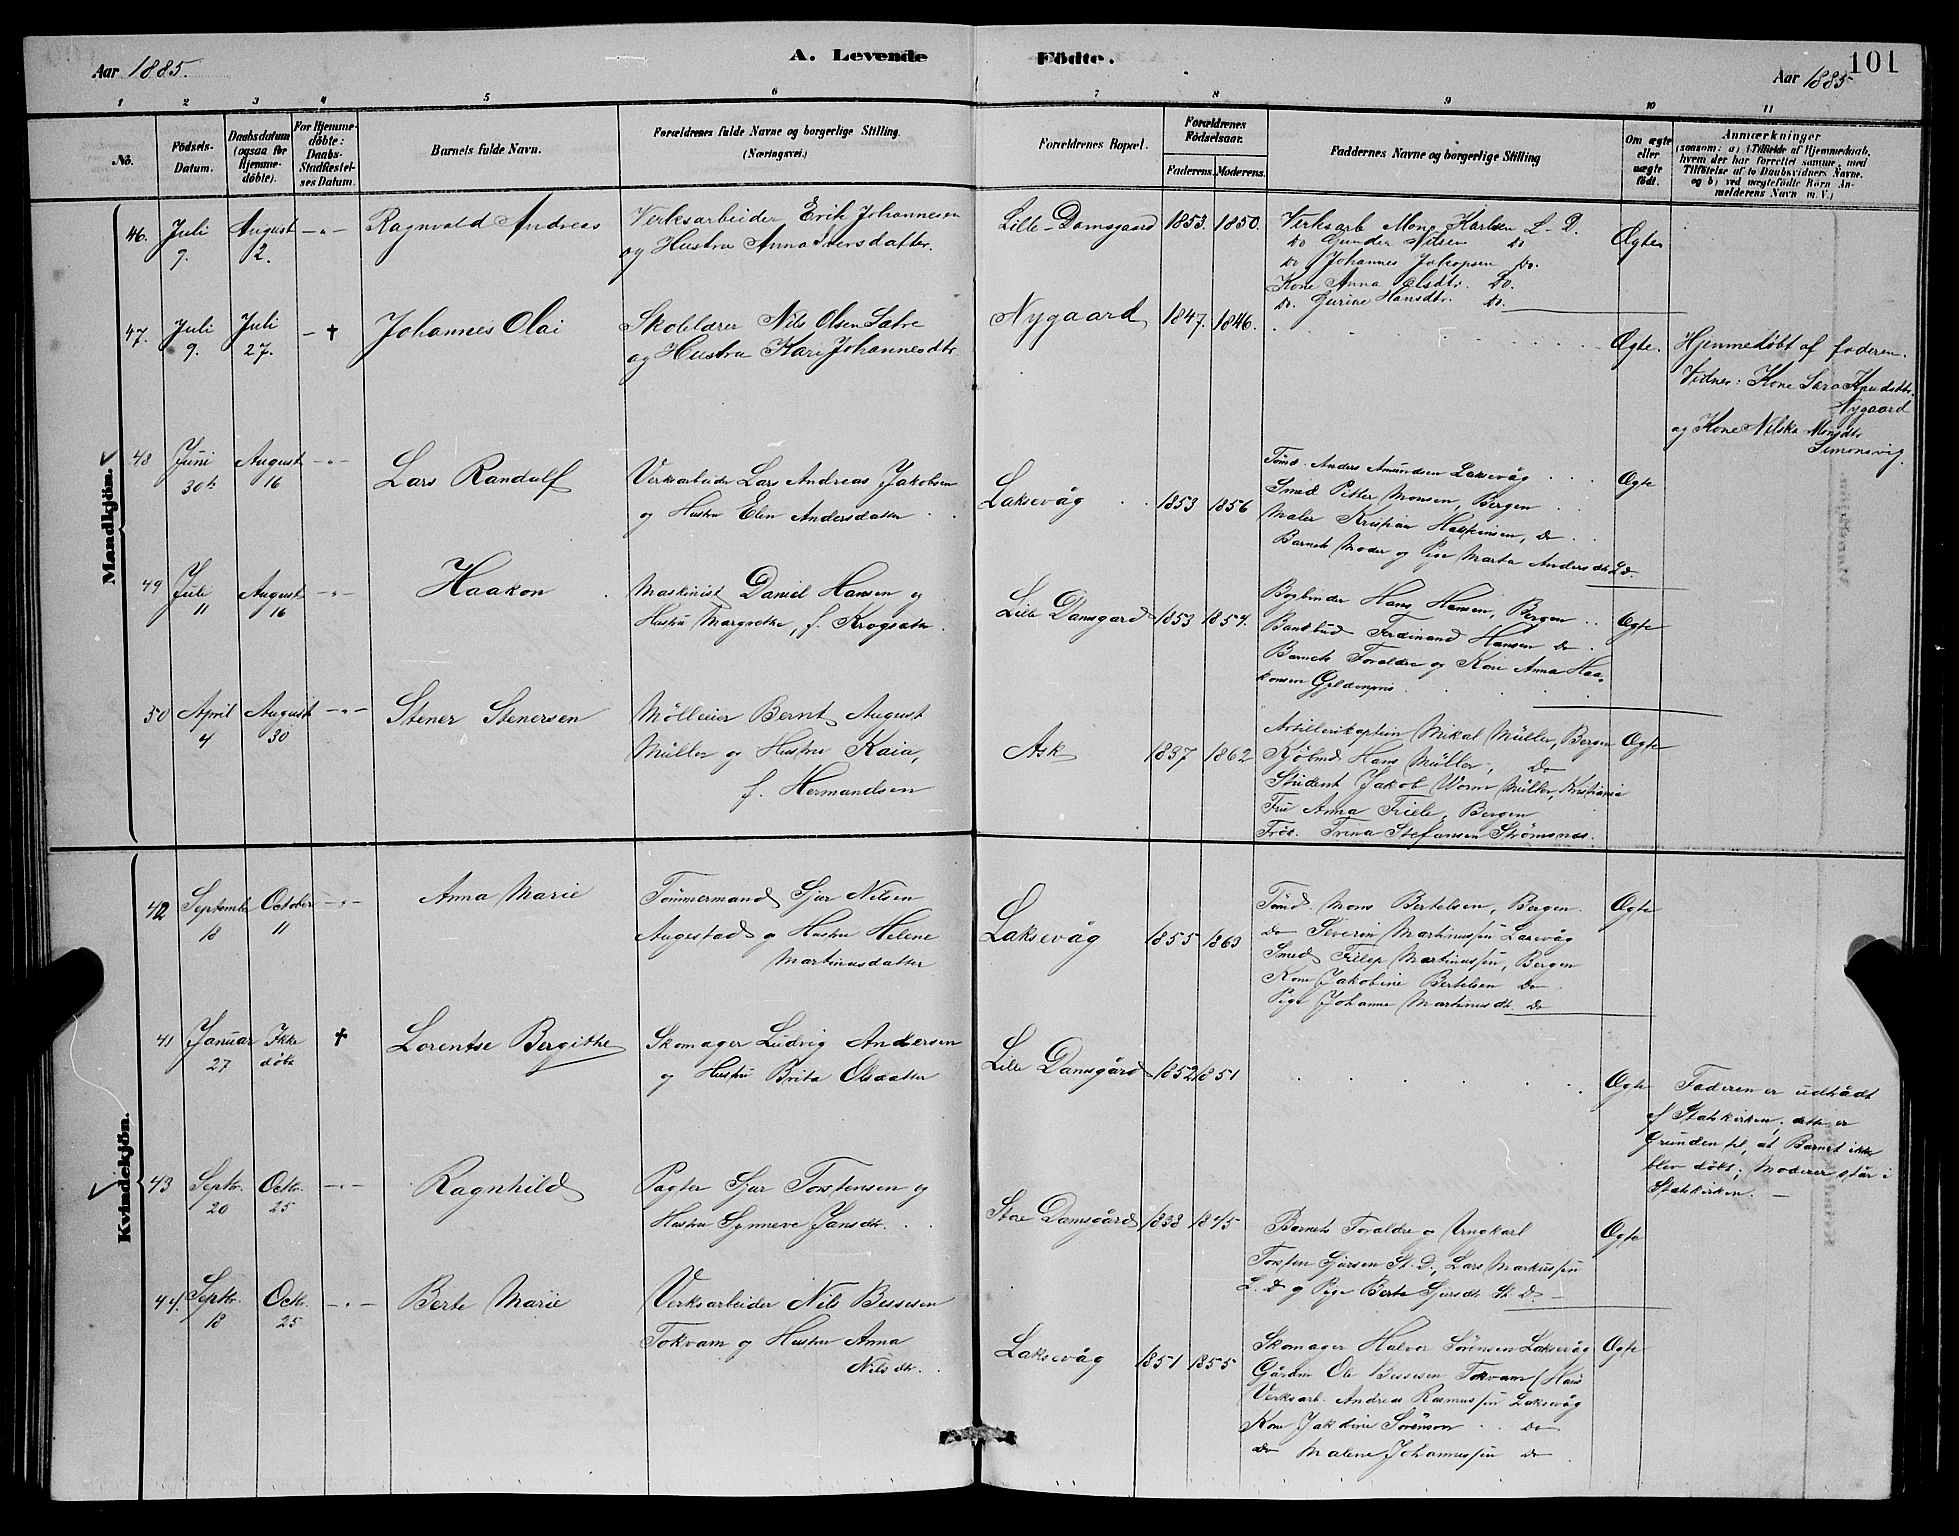 Aar 1885.
A. Levende
Födte.
101
Aar 1885
1 2 3 4 5 6 7 8 9 10 11
No.
Födsels-
Datum.
Daabsdatum
(ogsaa for
Hjemme-
döbte).
For Hjemme-
döbte:
Daabs-
Stadfæstel-
ses Datum.
Barnets fulde Navn.
Forældrenes fulde Navne og borgerlige Stilling.
(Næringsvei.)
Forældrenes Bopæl.
Forældrenes
Födselsaar.
Faderens. Moderens.
Faddernes Navne og borgerlige Stilling
Om ægte
eller
uægte
födt.
Anmærkninger
(saasom: a) i Tilfælde af Hjemmedaab,
hvem der har forrettet samme, med
Tilföielse af to Daabsvidners Navne.
og b) ved uægtefödte Börn An-
melderens Navn m. V.)
Mandkjön.
46. Juli
9.
August
2.
Ragnvald Andreas
Verksarbeider Erik Johannesen
og Hustru Anna Iversdatter.
Lille-Damsgaard 1853. 1850.
Verksarb Mons Karlsen L. D.
Do Gunder Nilsen Do
Do Johannes Jakopsen Do.
Kone Anna Olsdtr. Do.
Do. Gurine Hansdtr. Do.
Ægte
47. Juli
9.
Juli
27.
†
Johannes Olai
Skolelærer Nils Olsen Sætre
og Hustru Kari Johannesdtr
Nygaard 1847. 1846.
Ægte.
Hjemmedøbt af faderen.
Vidner: Kone Sara Knudsdtr.
Nygaard
og Kone Nilska Monsdtr
Simonsvig.
48 Juni
30te
August
16
Lars Randulf
Verksarbeider Lars Andreas Jakobsen
og Hustru Elen Andersdatter
Laksevåg 1853 1856
Tømd. Anders Amundsen Laksevåg
Smed Petter Monsen, Bergen
Maler Kristian Haakonsen, Do
Barnets Moder og Pige Marta Andersdtr L.D.
Ægte
49 Juli
11
August
16
Haakon
Maskinist Daniel Hansen og
Hustru Margrethe, f. Krogsæter
Lille Damsgård 1853 1857.
Bogbinder Hans Hansen, Bergen
Bankbud Ferdinand Hansen Do
Barnets Forældre og Kone Anna Haa-
konsen Gyldenpris
Ægte
50 April
4
August
30
Stener Stenersen
Mølleeier Bernt August
Müller og Hustru Kaia,
f. Hermandsen
Ask 1837 1862
Artillerikaptein Mikal Müller, Bergen
Kjøbmd Hans Müller, Do
Student Jakob Worm Müller, Kristiania
Fru Anna Friele, Bergen
Frøk. Trina Stefansen Strømsnes.
Ægte
Kvindekjön.
42 September
18
October
11
Anna Marie
Tømmermand Sjur Nilsen
Augestad og Hustru Helene
Martinusdatter
Laksevåg 1855 1863
Tømd. Mons Bertelsen, Bergen.
do Severin Martinussen Laxevåg
Smed Fillip Martinussen, Bergen
Kone Jakobine Bertelsen Do
Pige Johanne Martinusdtr. Do
Ægte
41 Januar
27
Ikke
døbt
†
Lorentse Bergithe
Skomager Ludvig Andersen
og Hustru Brita Olsdatter
Lille Damsgård 1852 1851
Ægte
Faderen er udtrådt
af Statskirken, dette er
Grunden til, at Barnet ikke
blev døbt; Moderen står i
Statskirken. —
43 Septbr.
20
Octbr.
25
Ragnhild
Pagter Sjur Torstensen og
Hustru Synneve Jansdtr.
Store Damsgård 1838 1845
Barnets Forældre og Ungkarl
Torsten Sjursen St. D., Lars Markussen
L. D og Pige Berte Sjursdtr St D.
Ægte
44. Septbr.
18
Octbr.
25
Berte Marie
Verksarbeider Nils Bessesen
Tokvam og Hustru Anna
Nilsdtr.
Laksevåg 1851 1855
Skomager Halvor Sørensen Laksevåg
Gårdm. Ole Bessesen Tokvam
Verksarb. Andreas Rasmussen Laksevåg
Kone Jakobine Sørensen Do
Do Malene Johannessen Do
Ægte